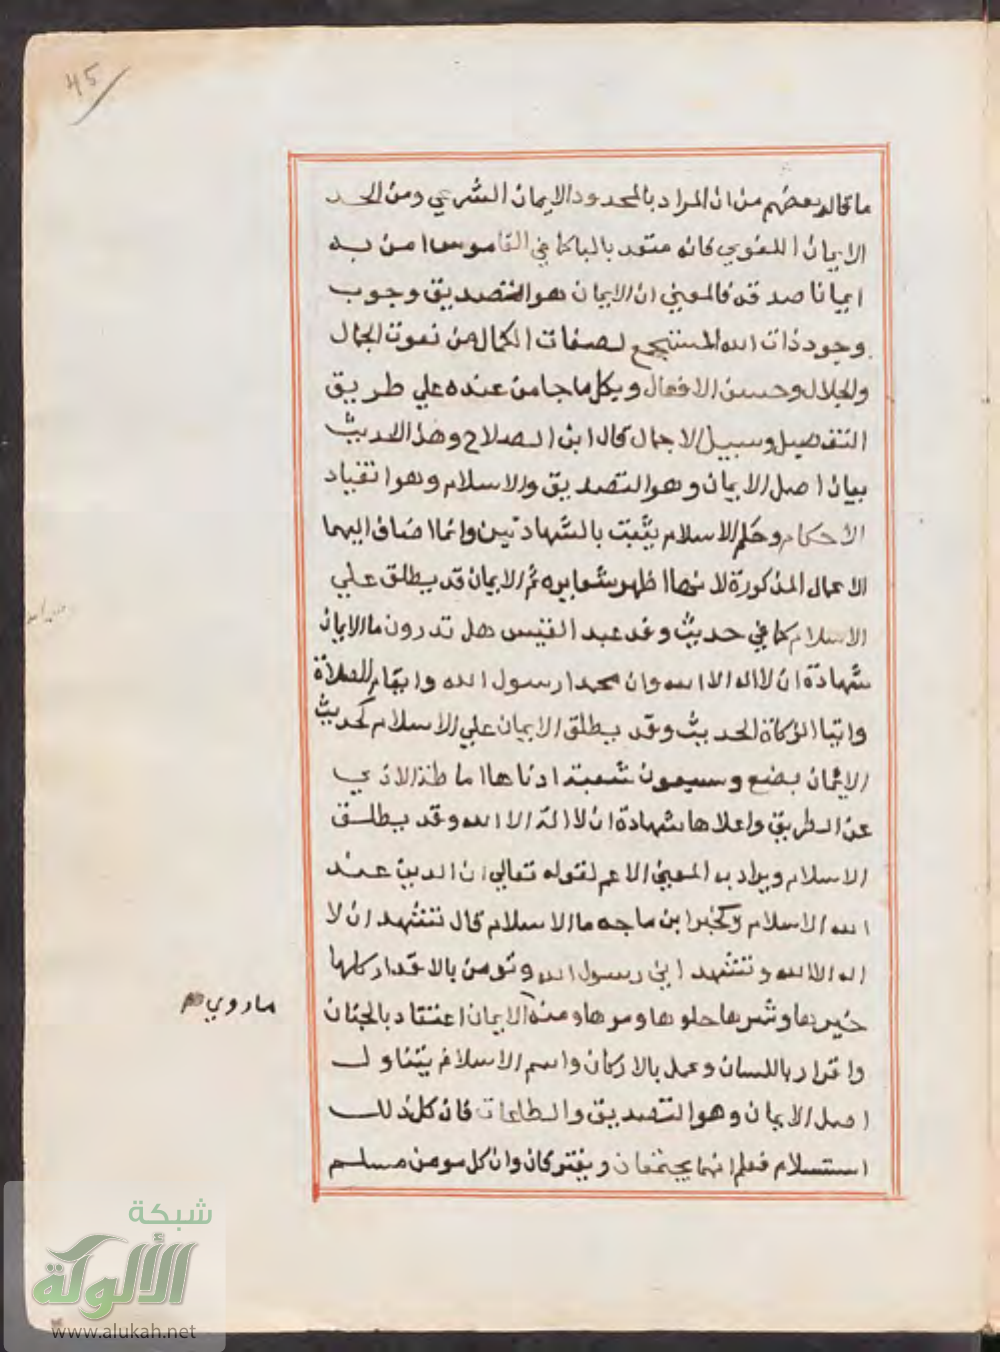 45
ما قاله بعضهم من ان المراد بالمحدود الايمان الشرعي ومن الحد
الايمان اللغوي فانه متعد بالباكما في القاموس امن به
ايمانا صدقه فالمعني ان الايمان هو التصديق وجوب
وجود ذات الله المستجمع لصفات الكمال من نعوت الجمال
والجلال وحسن الافعال وبكل ما جا من عنده علي طريق
التفصيل وسبيل الاجمال قال ابن الصلاح وهذا الحديث
بيان اصل الايمان وهو التصديق والاسلام وهو انقياد
الاحكام وحكم الاسلام يثبت بالشهادتين وانما اضاف اليهما
الاعمال المذكورة لانها اظهر شعايره ثم الايمان قد يطلق علي
الاسلام كما في حديث وفد عبد القيس هل تدرون ما الايمان
شهادة ان لا اله الا الله وان محمدا رسول الله واقام الصلاة
وايتا الزكاة الحديث وقد يطلق الايمان علي الاسلام كحديث
الايمان بضع وسبعون شعبة ادناها اماطة الاذي
عن الطريق واعلاها شهادة ان لا اله الا الله وقد يطلق
الاسلام ويراد به المعني الاعم لقوله تعالي ان الدين عند
الله الاسلام وكخبر ابن ماجه ما الاسلام قال تشهد ان لا
اله الا الله وتشهد اني رسول الله وتومن بالاقدار كلها
خيرها وشرها حلوها ومرها ومنه الايمان اعتقاد بالجنان
ما روي
واقرار باللسان وعمل بالاركان واسم الاسلام يتناول
اصل الايمان وهو التصديق والطاعات فان كل ذلك
استسلام فعلم انهما يجتمعان ويفترقان وان كل مومن مسلم
شبكة
الألوكة
www.alukah.net